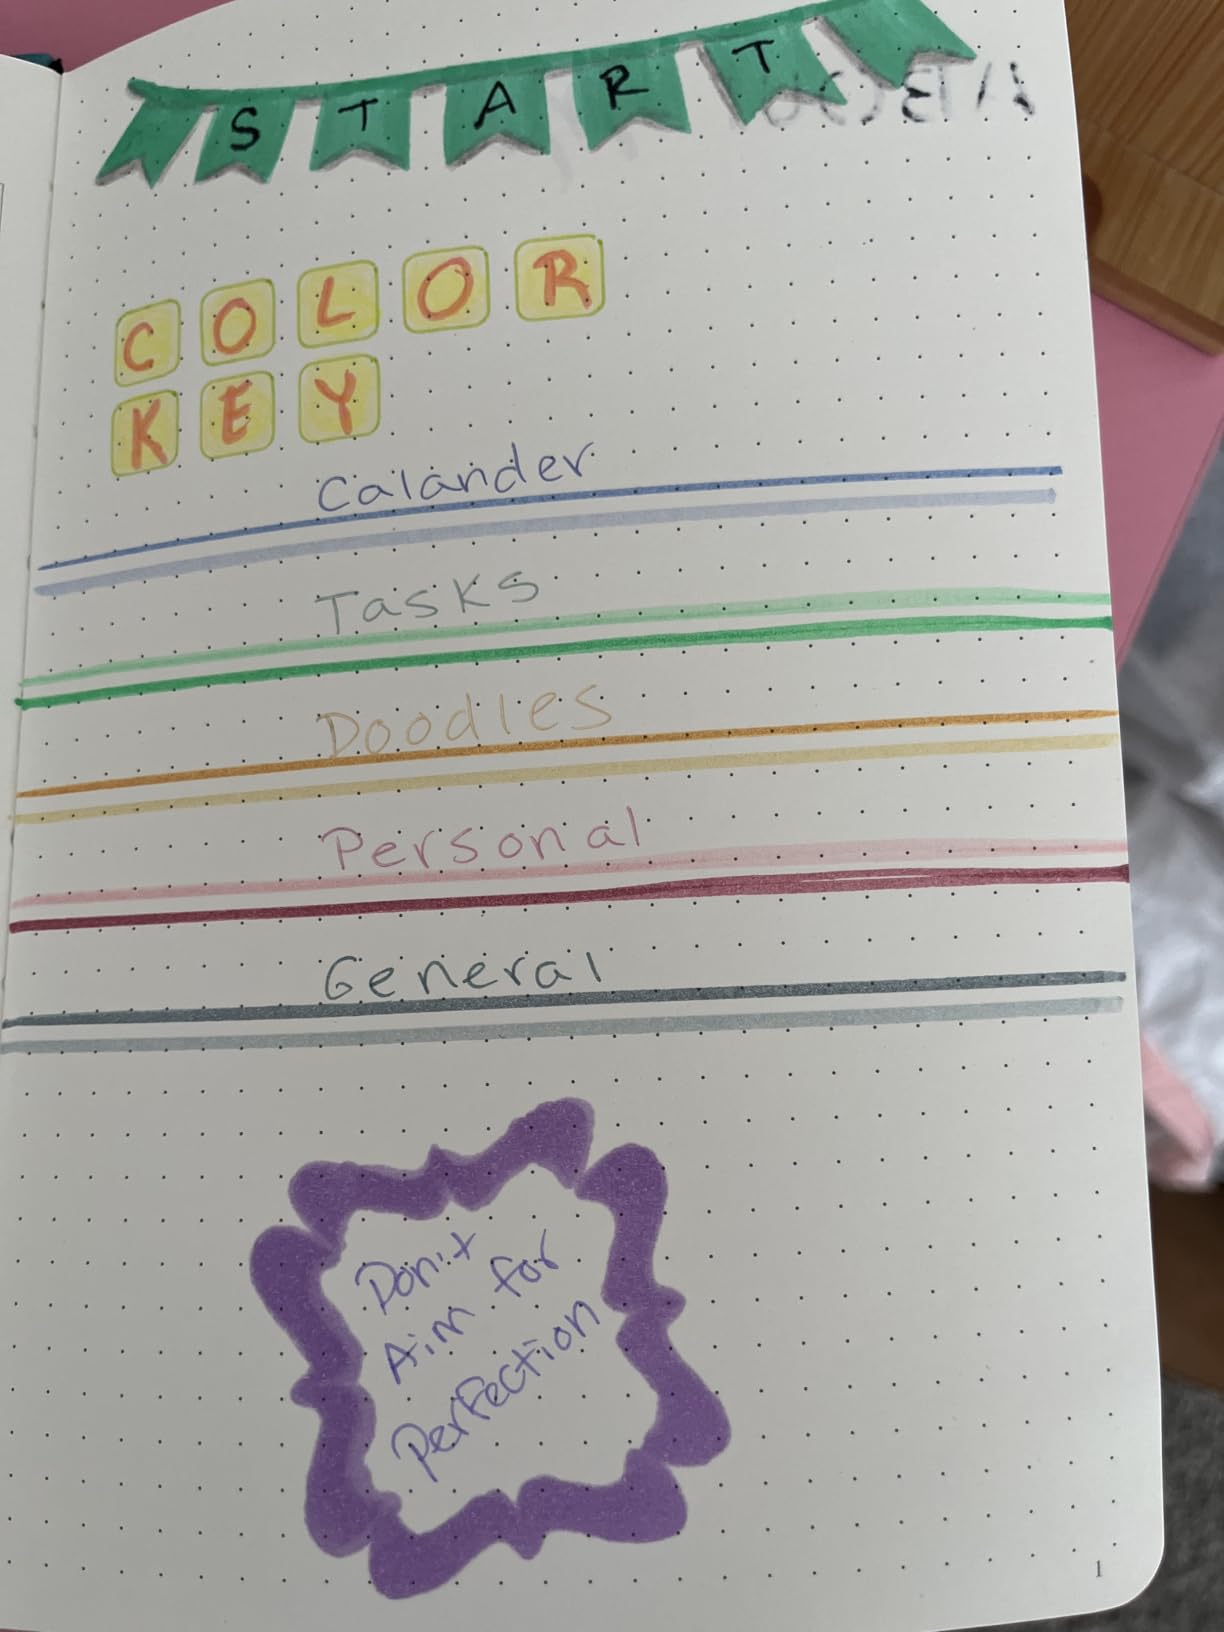 START
COLOR
KEY
Calander
Tasks
Doodles
Personal
General
Don't
Aim for
Perfection
1